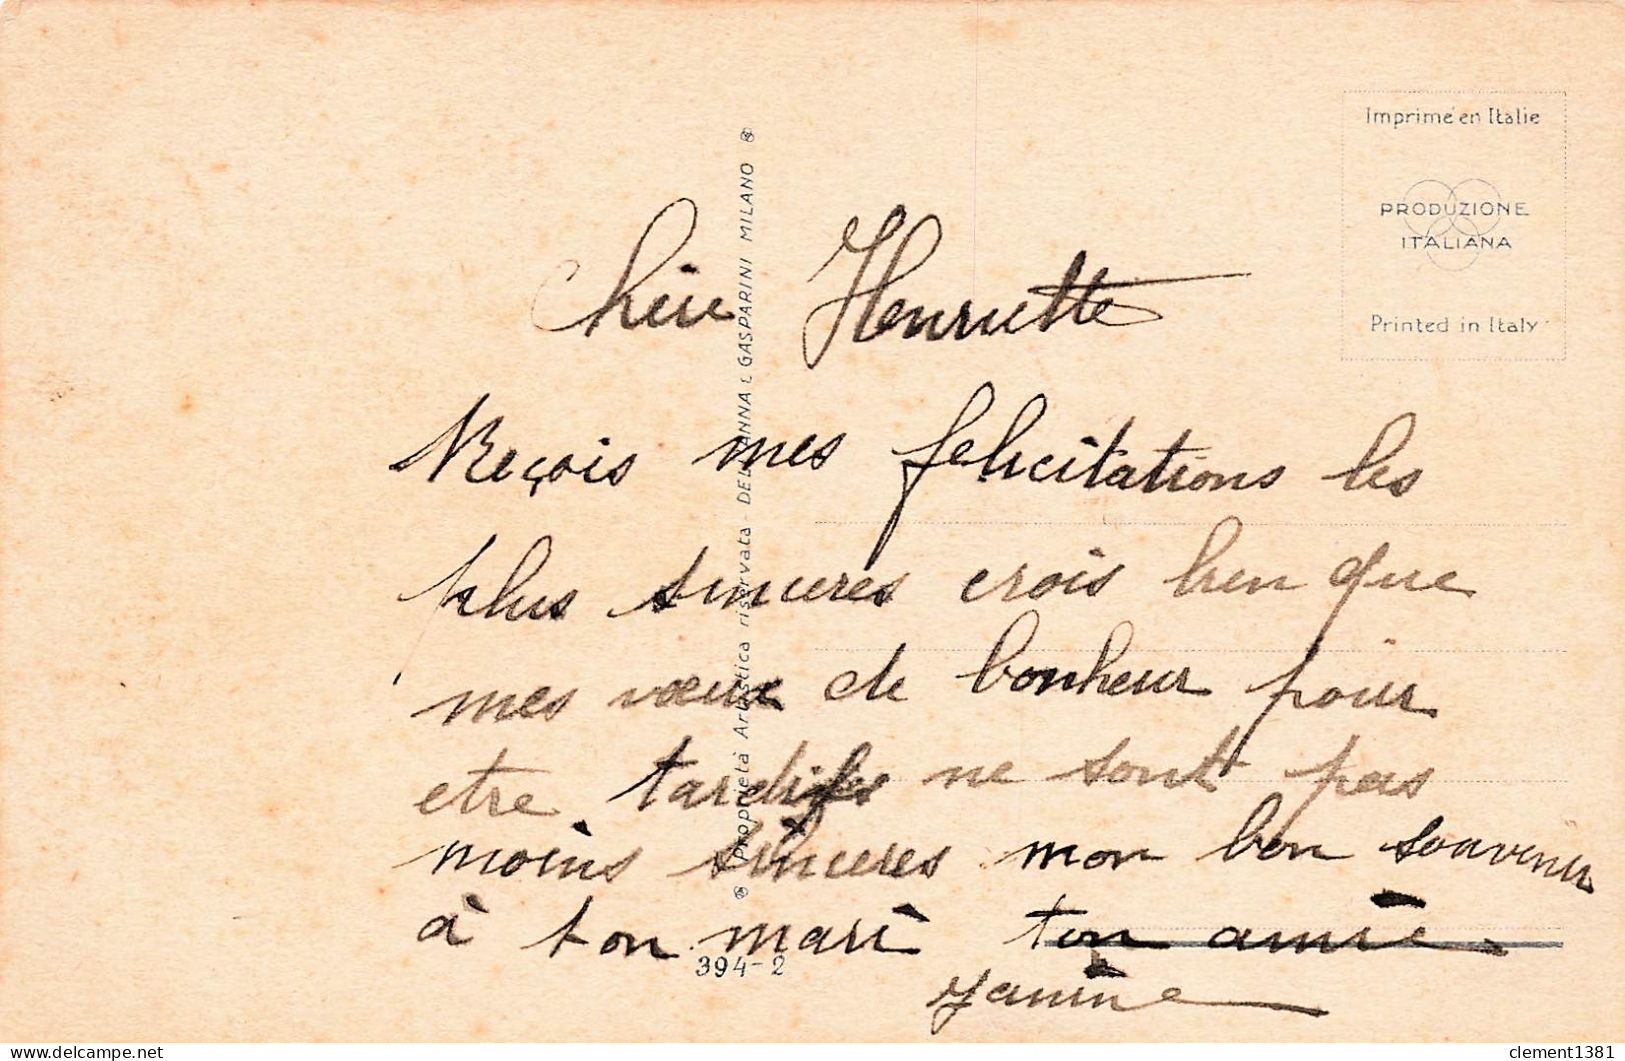 Imprimé en Italie
PRODUZIONE
ITALIANA
Printed in Italy
Proprietà Artistica riservata - DELL'ANNA E GASPARINI MILANO
Chère Henriette
Reçois mes felicitations les
plus sinceres crois bien que
mes vœux de bonheur pour
etre tardifs ne sont pas
moins sinceres mon bon souvenir
à ton mari ton amie
Janine
394-2
delcampe.net
clement1381